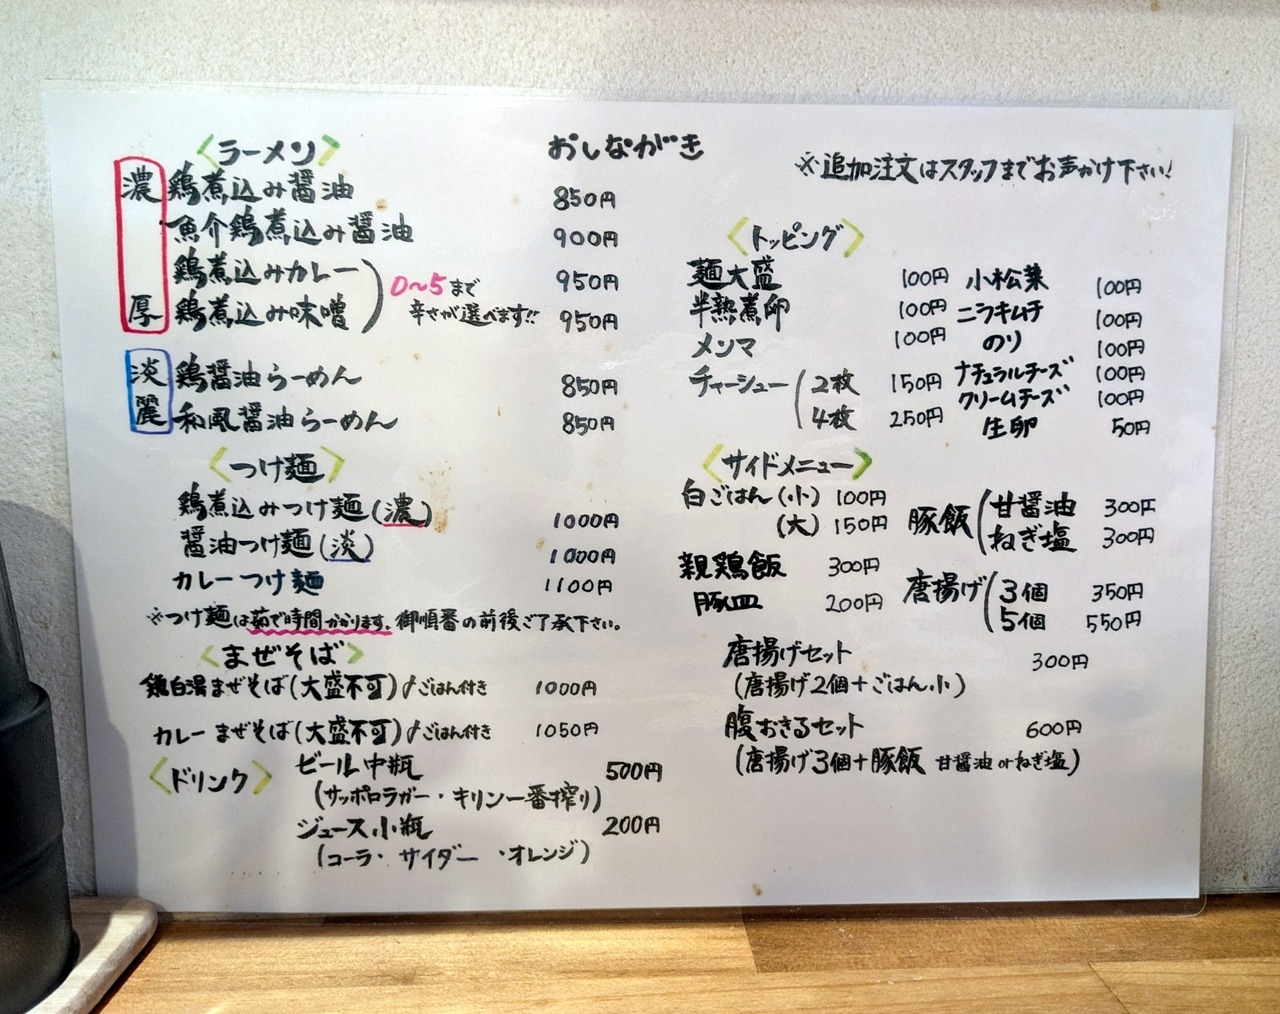 おしながき
※追加注文はスタッフまでお声かけ下さい!
〈ラーメン〉
濃厚
鶏煮込み醤油 850円
魚介鶏煮込み醤油 900円
鶏煮込みカレー 950円
鶏煮込み味噌 950円
0〜5まで
辛さが選べます!!
淡麗
鶏醤油らーめん 850円
和風醤油らーめん 850円
〈つけ麺〉
鶏煮込みつけ麺(濃) 1000円
醤油つけ麺(淡) 1000円
カレーつけ麺 1100円
※つけ麺は茹で時間かかります。御順番の前後ご了承下さい。
〈まぜそば〉
鶏白湯まぜそば(大盛不可)♪ごはん付き 1000円
カレーまぜそば(大盛不可)♪ごはん付き 1050円
〈ドリンク〉
ビール中瓶 500円
(サッポロラガー・キリン一番搾り)
ジュース小瓶 200円
(コーラ・サイダー・オレンジ)
〈トッピング〉
麺大盛 100円
半熟煮卵 100円
メンマ 100円
チャーシュー(2枚 150円
4枚 250円
小松菜 100円
ニラキムチ 100円
のり 100円
ナチュラルチーズ 100円
クリームチーズ 100円
生卵 50円
〈サイドメニュー〉
白ごはん(小) 100円
(大) 150円
親鶏飯 300円
豚皿 200円
豚飯(甘醤油 300円
ねぎ塩 300円
唐揚げ(3個 350円
5個 550円
唐揚げセット 300円
(唐揚げ2個+ごはん小)
腹おきるセット 600円
(唐揚げ3個+豚飯 甘醤油orねぎ塩)